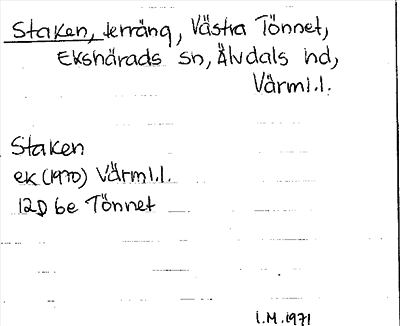 Staken, terräng, Västra Tönnet,
Ekshärads sn, Älvdals hd,
Värml.l.
Staken
ek (1970) Värml.l.
12D be Tönnet
I.M.1971